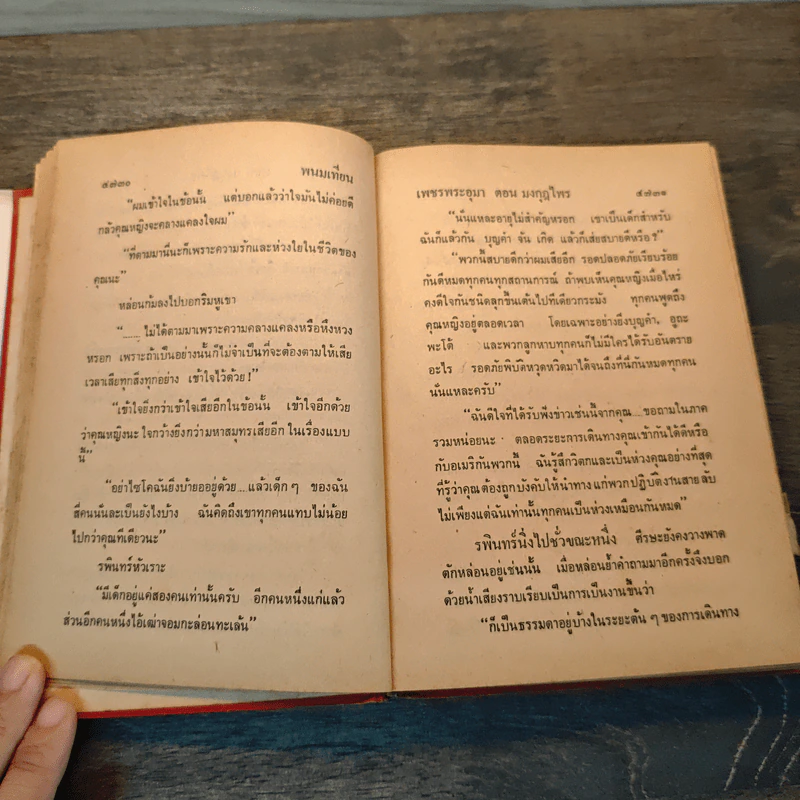 ๔๗๓๐
พนมเทียน
“ผมเข้าใจในข้อนั้น แต่บอกแล้วว่าใจมันไม่ค่อยดี
กลัวคุณหญิงจะคลางแคลงใจผม”
“ที่ตามมานี่นะก็เพราะความรักและห่วงใยในชีวิตของ
คุณนะ”
หล่อนก้มลงไปบอกริมหูเขา
“...... ไม่ได้ตามมาเพราะความคลางแคลงหรือหึงหวง
หรอก เพราะถ้าเป็นอย่างนั้นก็ไม่จำเป็นที่จะต้องตามให้เสีย
เวลาเสียทุกสิ่งทุกอย่าง เข้าใจไว้ด้วย !”
“เข้าใจยิ่งกว่าเข้าใจเสียอีกในข้อนั้น เข้าใจอีกด้วย
ว่าคุณหญิงนะ ใจกว้างยิ่งกว่ามหาสมุทรเสียอีก ในเรื่องแบบ
นี้”
“อย่าไซโคฉันยิ่งบ้ายออยู่ด้วย.... แล้วเด็ก ๆ ของฉัน
สี่คนนั่นละเป็นยังไงบ้าง ฉันคิดถึงเขาทุกคนแทบไม่น้อย
ไปกว่าคุณทีเดียวนะ”
รพินทร์หัวเราะ
“มีเด็กอยู่แค่สองคนเท่านั้นครับ อีกคนหนึ่งแก่แล้ว
ส่วนอีกคนหนึ่งไอ้เฒ่าจอมกะล่อนทะเล้น”
เพชรพระอุมา ตอน มงกุฎไพร
๔๗๓๑
“นั่นแหละอายุไม่สำคัญหรอก เขาเป็นเด็กสำหรับ
ฉันก็แล้วกัน บุญคำ จัน เกิด แล้วก็เส่ยสบายดีหรือ ?”
“พวกนี้สบายดีกว่าผมเสียอีก รอดปลอดภัยเรียบร้อย
กันดีหมดทุกคนทุกสถานการณ์ ถ้าพบเห็นคุณหญิงเมื่อไหร่
คงดีใจกันชนิดลุกขึ้นเต้นไปทีเดียวกระมัง ทุกคนพูดถึง
คุณหญิงอยู่ตลอดเวลา โดยเฉพาะอย่างยิ่งบุญคำ, อูถะ
พะโต้ และพวกลูกหาบทุกคนก็ไม่มีใครได้รับอันตราย
อะไร รอดภัยพิบัติหวุดหวิดมาได้จนถึงที่นี่กันหมดทุกคน
นั่นแหละครับ”
“ฉันดีใจที่ได้รับฟังข่าวเช่นนี้จากคุณ.... ขอถามในภาค
รวมหน่อยนะ ตลอดระยะการเดินทางคุณเข้ากันได้ดีหรือ
กับอเมริกันพวกนี้ ฉันรู้สึกวิตกและเป็นห่วงคุณอย่างที่สุด
ที่รู้ว่าคุณต้องถูกบังคับให้นำทาง แก่พวกปฏิบัติงานสายลับ
ไม่เพียงแต่ฉันเท่านั้นทุกคนเป็นห่วงเหมือนกันหมด”
รพินทร์นิ่งไปชั่วขณะหนึ่ง ศีรษะยังคงวางพาด
ตักหล่อนอยู่เช่นนั้น เมื่อหล่อนย้ำคำถามมาอีกครั้งจึงบอก
ด้วยน้ำเสียงราบเรียบเป็นการเป็นงานขึ้นว่า
“ก็เป็นธรรมดาอยู่บ้างในระยะต้น ๆ ของการเดินทาง